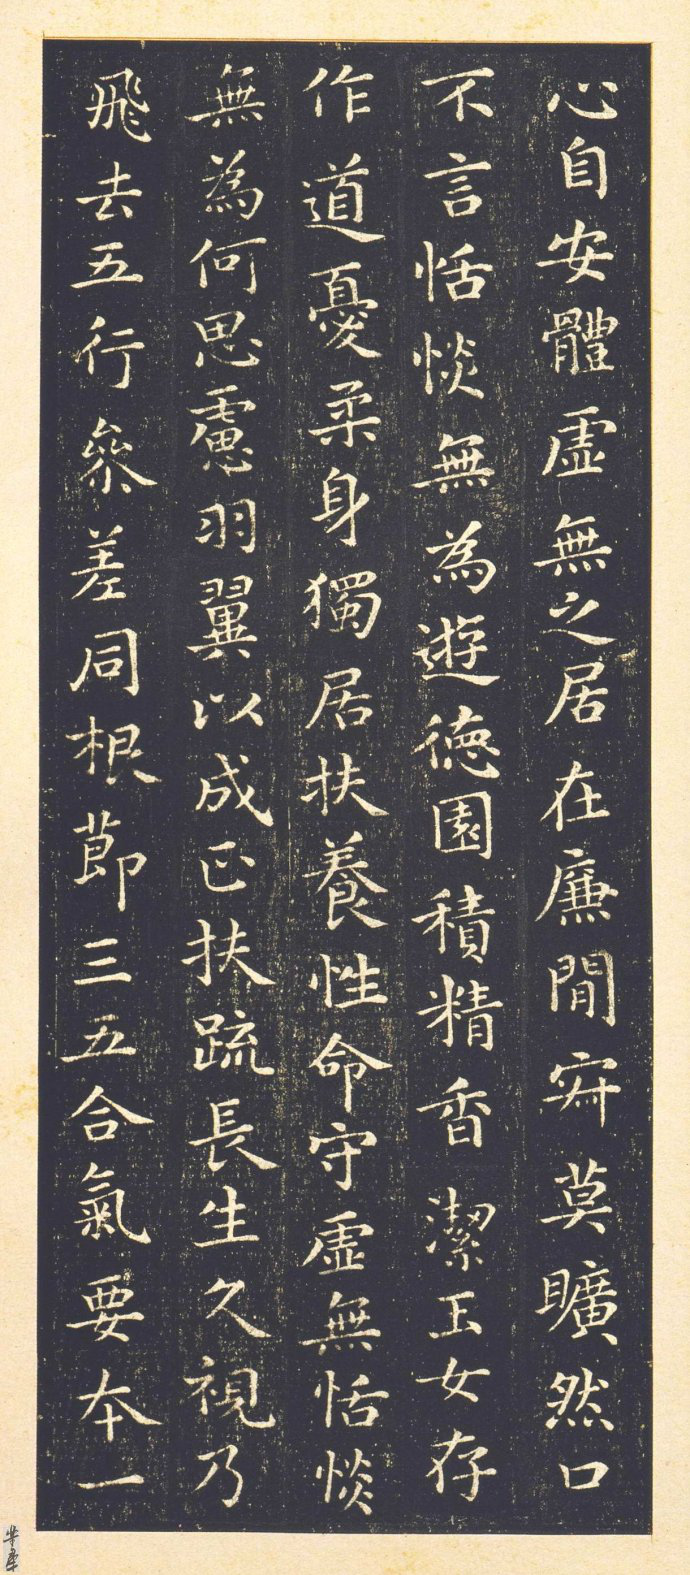 心自安體虛無之居在廉閒㝥莫曠然口
不言恬惔無為遊德園積精香潔玉女存
作道憂柔身獨居扶養性命守虛無恬惔
無為何思慮羽翼以成正扶疏長生久視乃
飛去五行參差同根節三五合氣要本一